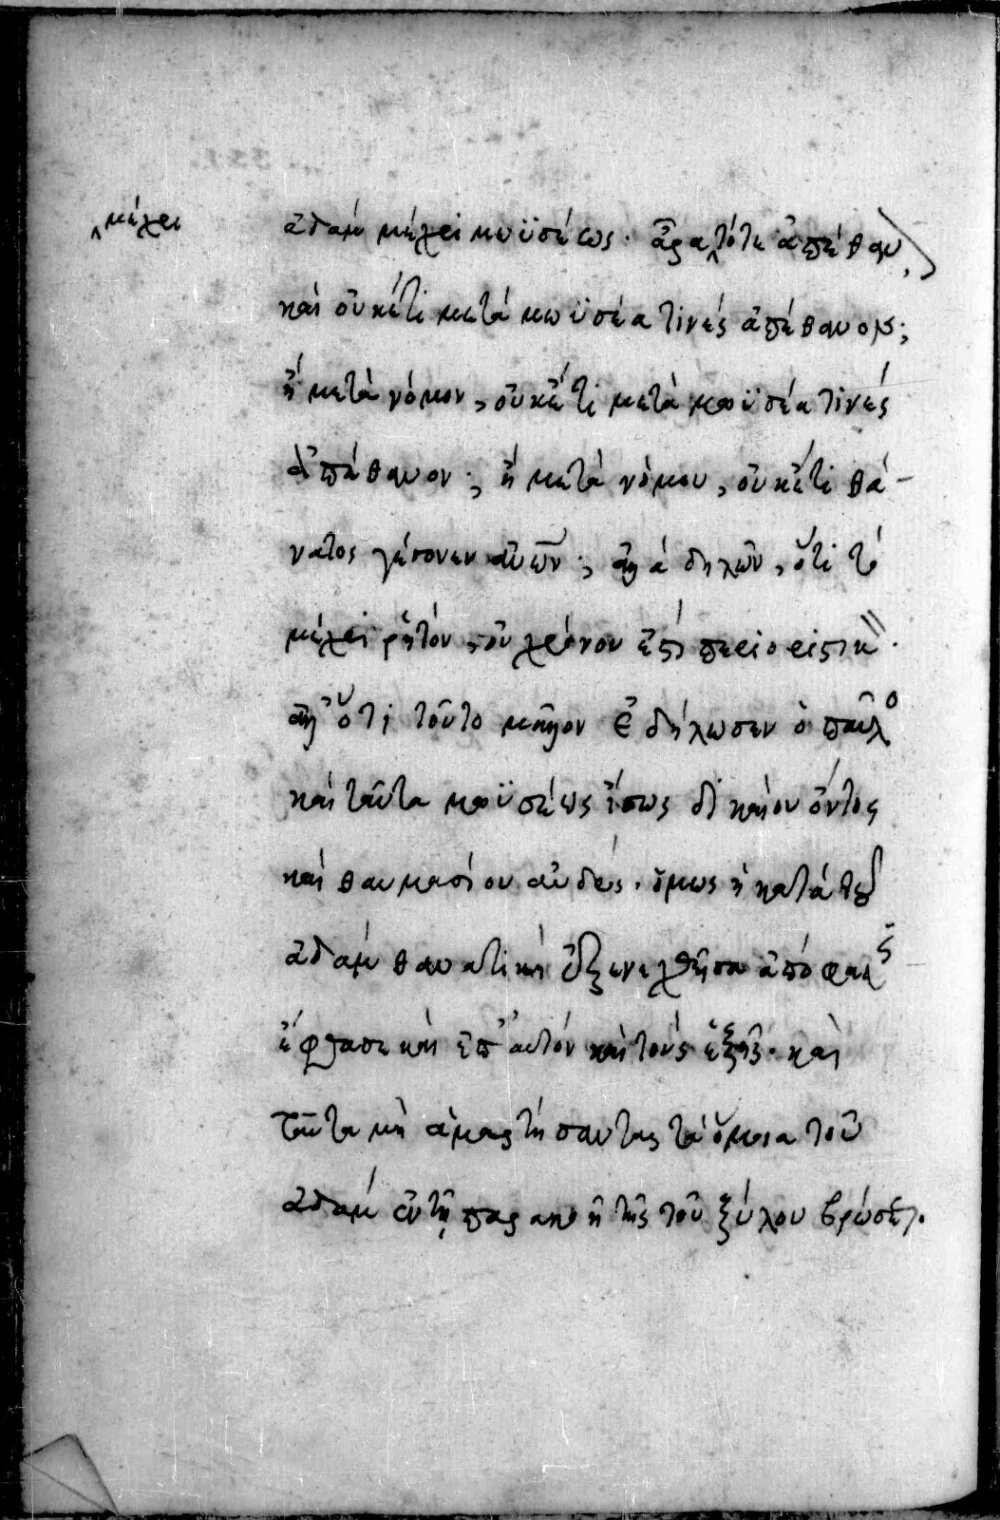 μέχρι
ἀδὰμ μέχρι μωϋσέως. ἆρα τότε ἀπέθανον,
καὶ οὐκέτι μετὰ μωϋσέα τινὲς ἀπέθανον;
ἢ μετὰ νόμον, οὐκέτι μετὰ μωϋσέα τινὲς
ἀπέθανον; ἢ μετὰ νόμου, οὐκέτι θά-
νατος γέγονεν αὐτῶν; ἀλλὰ δηλῶν, ὅτι τὸ
μέχρι ῥητόν, οὐ χρόνου ἐστὶ περιοριστικόν.
ἀλλ' ὅτι τοῦτο μᾶλλον ἐδήλωσεν ὁ παῦλος
καὶ ταῦτα μωϋσέως ἴσως δικαίου ὄντος
καὶ θαυμασίου ἀνδρός. ὅμως ἡ κατὰ τοῦ
ἀδὰμ θανατικὴ ἐξενεχθεῖσα ἀπόφασις
ἔφθασε καὶ ἐπ' αὐτὸν καὶ τοὺς ἑξῆς. καὶ
ταῦτα μὴ ἁμαρτήσαντας τὰ ὅμοια τοῦ
ἀδὰμ ἐν τῇ παρακοῇ τῆς τοῦ ξύλου βρώσεως.